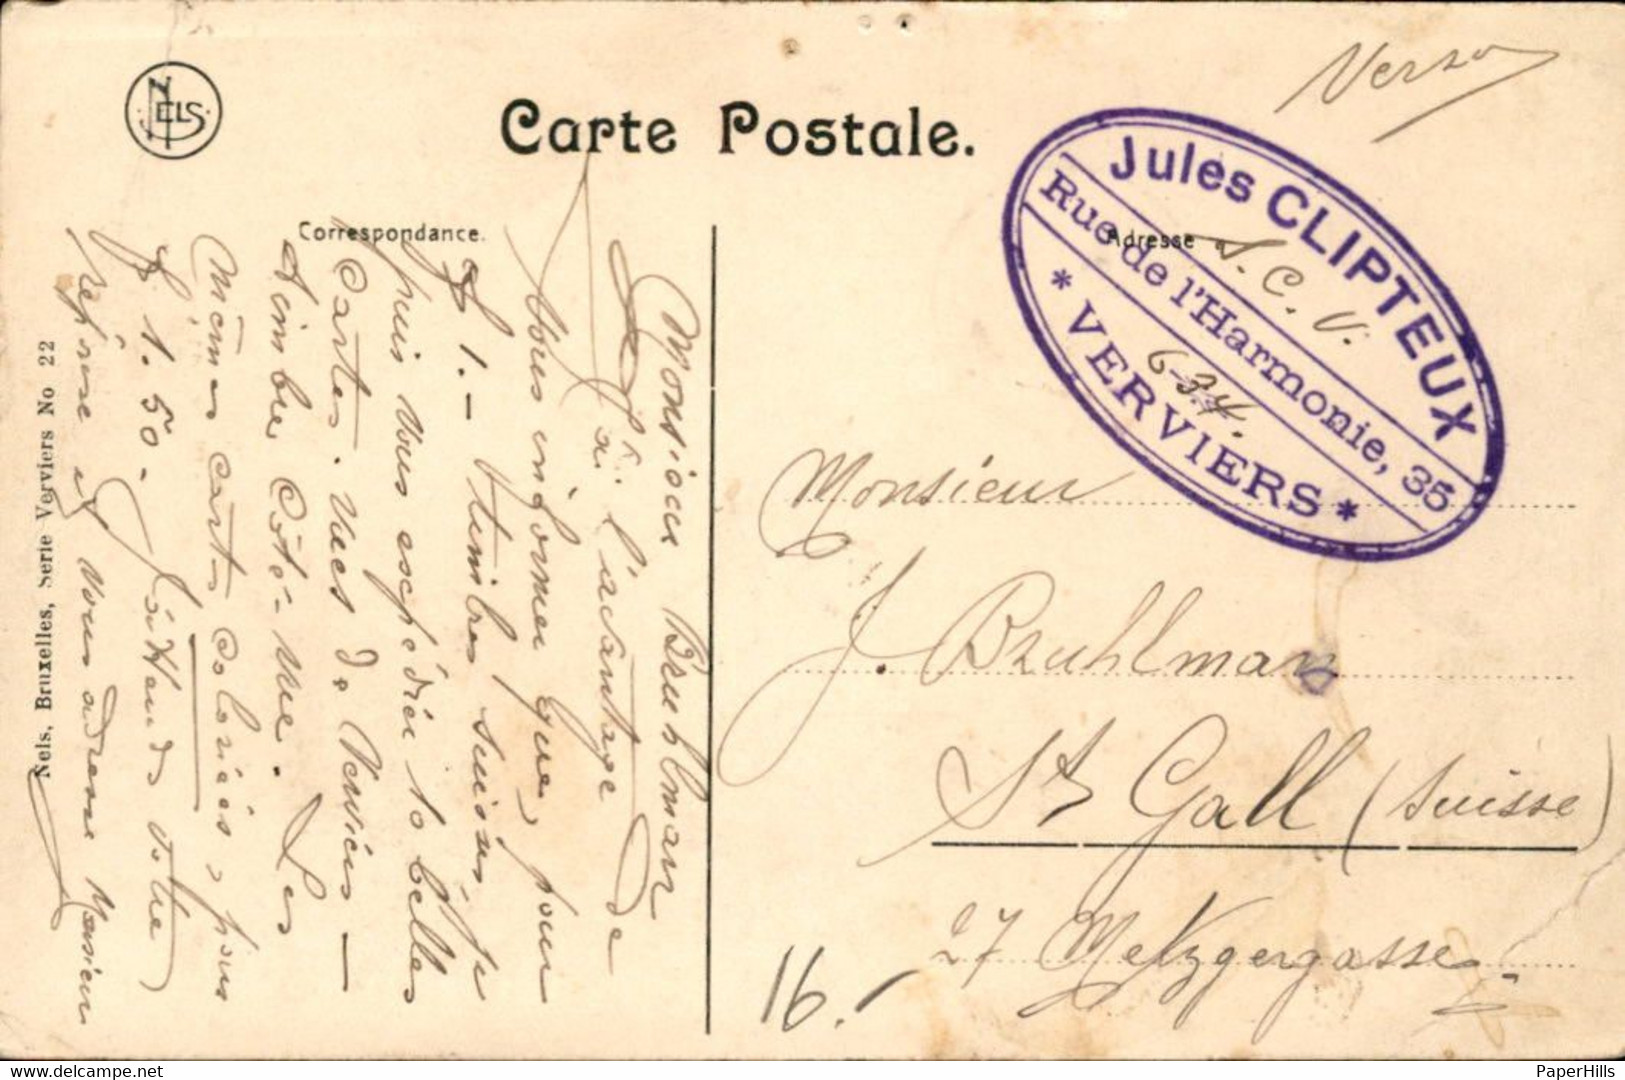 NELS
Carte Postale.
Verso
Jules CLIPTEUX
Rue de l'Harmonie, 35
* VERVIERS *
Correspondance.
Adresse
S. C. V.
6-34.
Monsieur
J. Bruhlman
St Gall (Suisse)
27 Metzgergasse
16.-
Monsieur Bruhlman
J'ai l'avantage de
vous informer que, pour
f 1.- timbres suisses, je
puis vous expédier 10 belles
cartes. Vues de Verviers -
timbre côté-vue. Les
mêmes cartes coloriées, pour
f 1.50. J'attends votre
réponse et vous adresse Monsieur
Nels, Bruxelles, Serie Verviers No 22
PaperHills